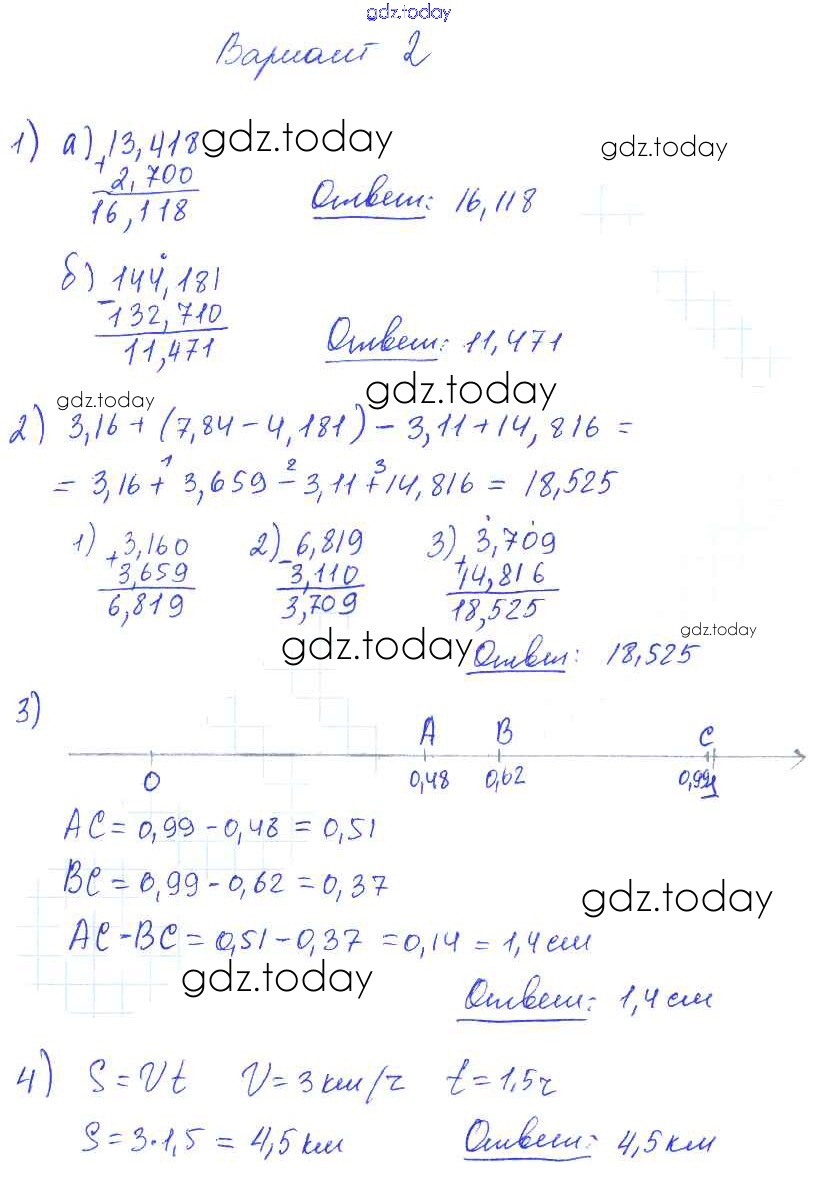 gdz.today
Вариант 2
1) а) 13,418 gdz.today gdz.today
+
2,700
16,118 Ответ: 16,118
б) 144,181
-
132,710
11,471 Ответ: 11,471
gdz.today gdz.today
2) 3,16 + (7,84 - 4,181) - 3,11 + 14,816 =
1 2 3
= 3,16 + 3,659 - 3,11 + 14,816 = 18,525
1) 3,160 2) 6,819 3) 3,709
+ - +
3,659 3,110 14,816
6,819 3,709 18,525
gdz.today gdz.today
Ответ: 18,525
3)
A B C
0 0,48 0,62 0,99 1
AC = 0,99 - 0,48 = 0,51
BC = 0,99 - 0,62 = 0,37
gdz.today
AC - BC = 0,51 - 0,37 = 0,14 = 1,4 см
gdz.today
Ответ: 1,4 см
4) S = Vt V = 3 км/ч t = 1,5 ч
S = 3·1,5 = 4,5 км Ответ: 4,5 км